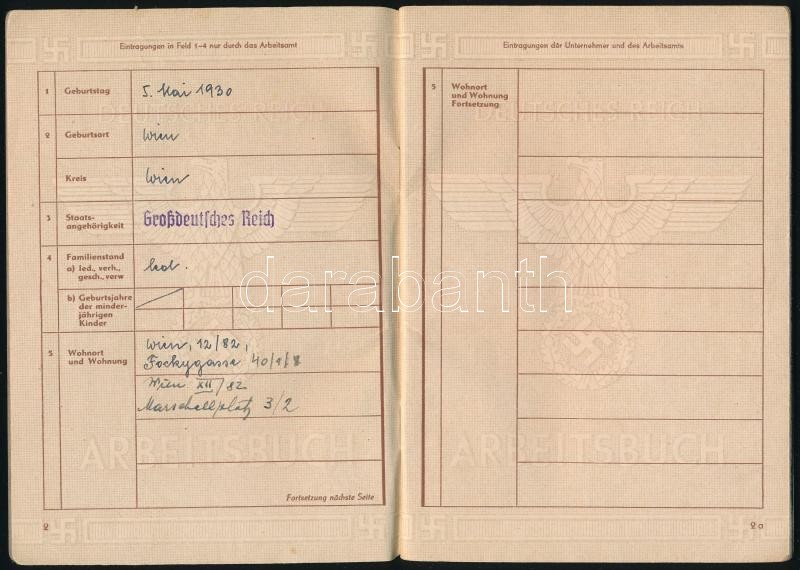 Eintragungen in Feld 1–4 nur durch das Arbeitsamt
1 Geburtstag 5. Mai 1930
2 Geburtsort Wien
Kreis Wien
3 Staats-
angehörigkeit Großdeutsches Reich
4 Familienstand
a) led., verh.,
gesch., verw led.
b) Geburtsjahre
der minder-
jährigen
Kinder
5 Wohnort
und Wohnung
Wien, 12/82,
Fockygasse 40/1/8
Wien XII/82
Marschallplatz 3/2
Fortsetzung nächste Seite
2
DEUTSCHES REICH
ARBEITSBUCH
Eintragungen der Unternehmer und des Arbeitsamts
5 Wohnort
und Wohnung
Fortsetzung
DEUTSCHES REICH
ARBEITSBUCH
2 a
darabanth